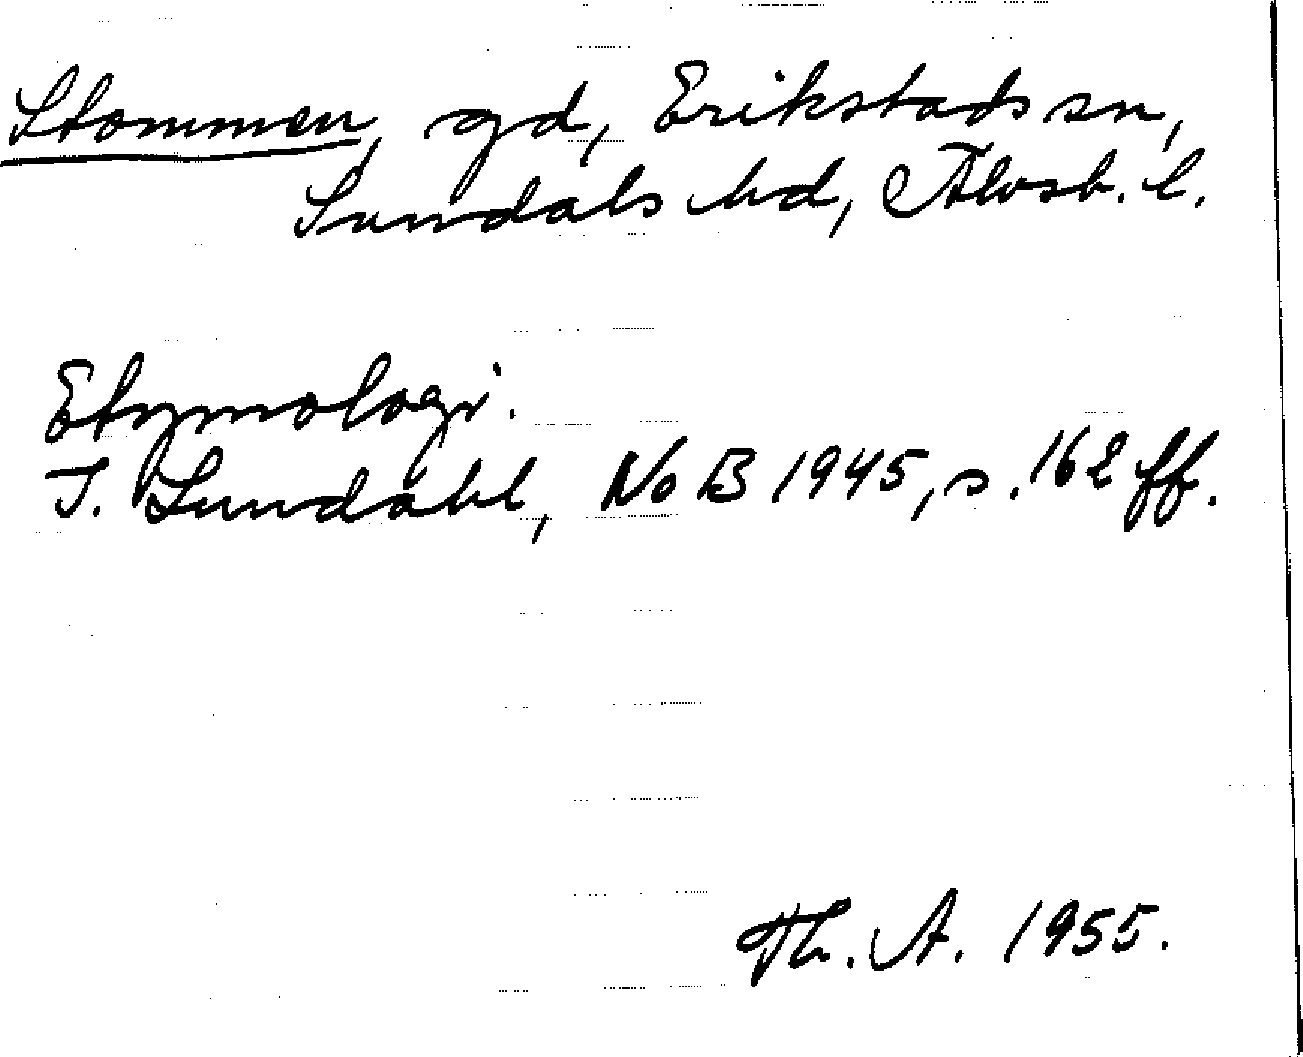 Stommen, gd, Erikstads sn,
Sundals hd, Älvsb. l.
Etymologi.
I. Lundahl, NoB 1945, s. 162 ff.
Th. A. 1955.